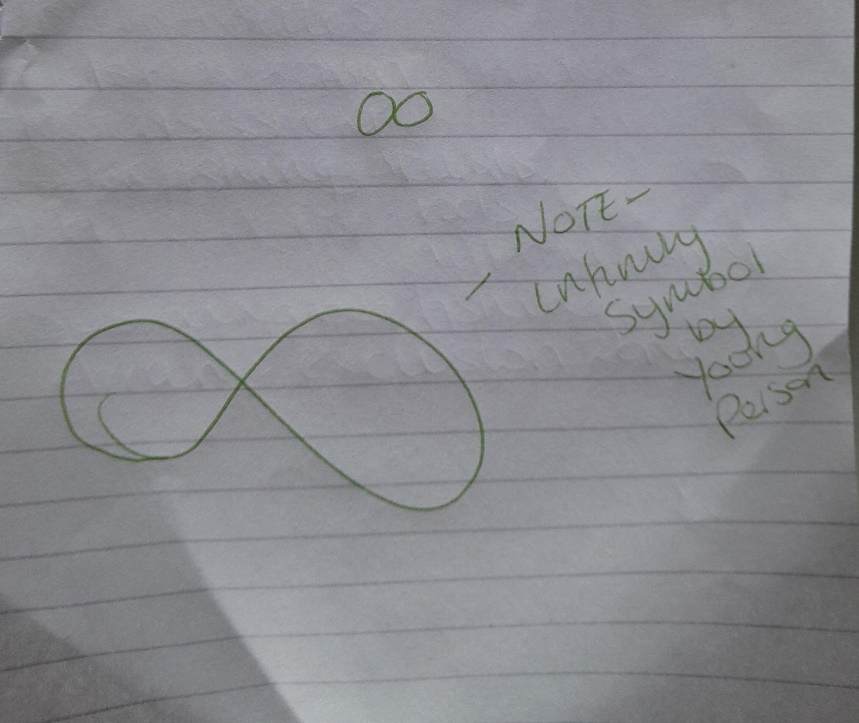 ∞
NOTE-
infinity
Symbol
by
Young
Person